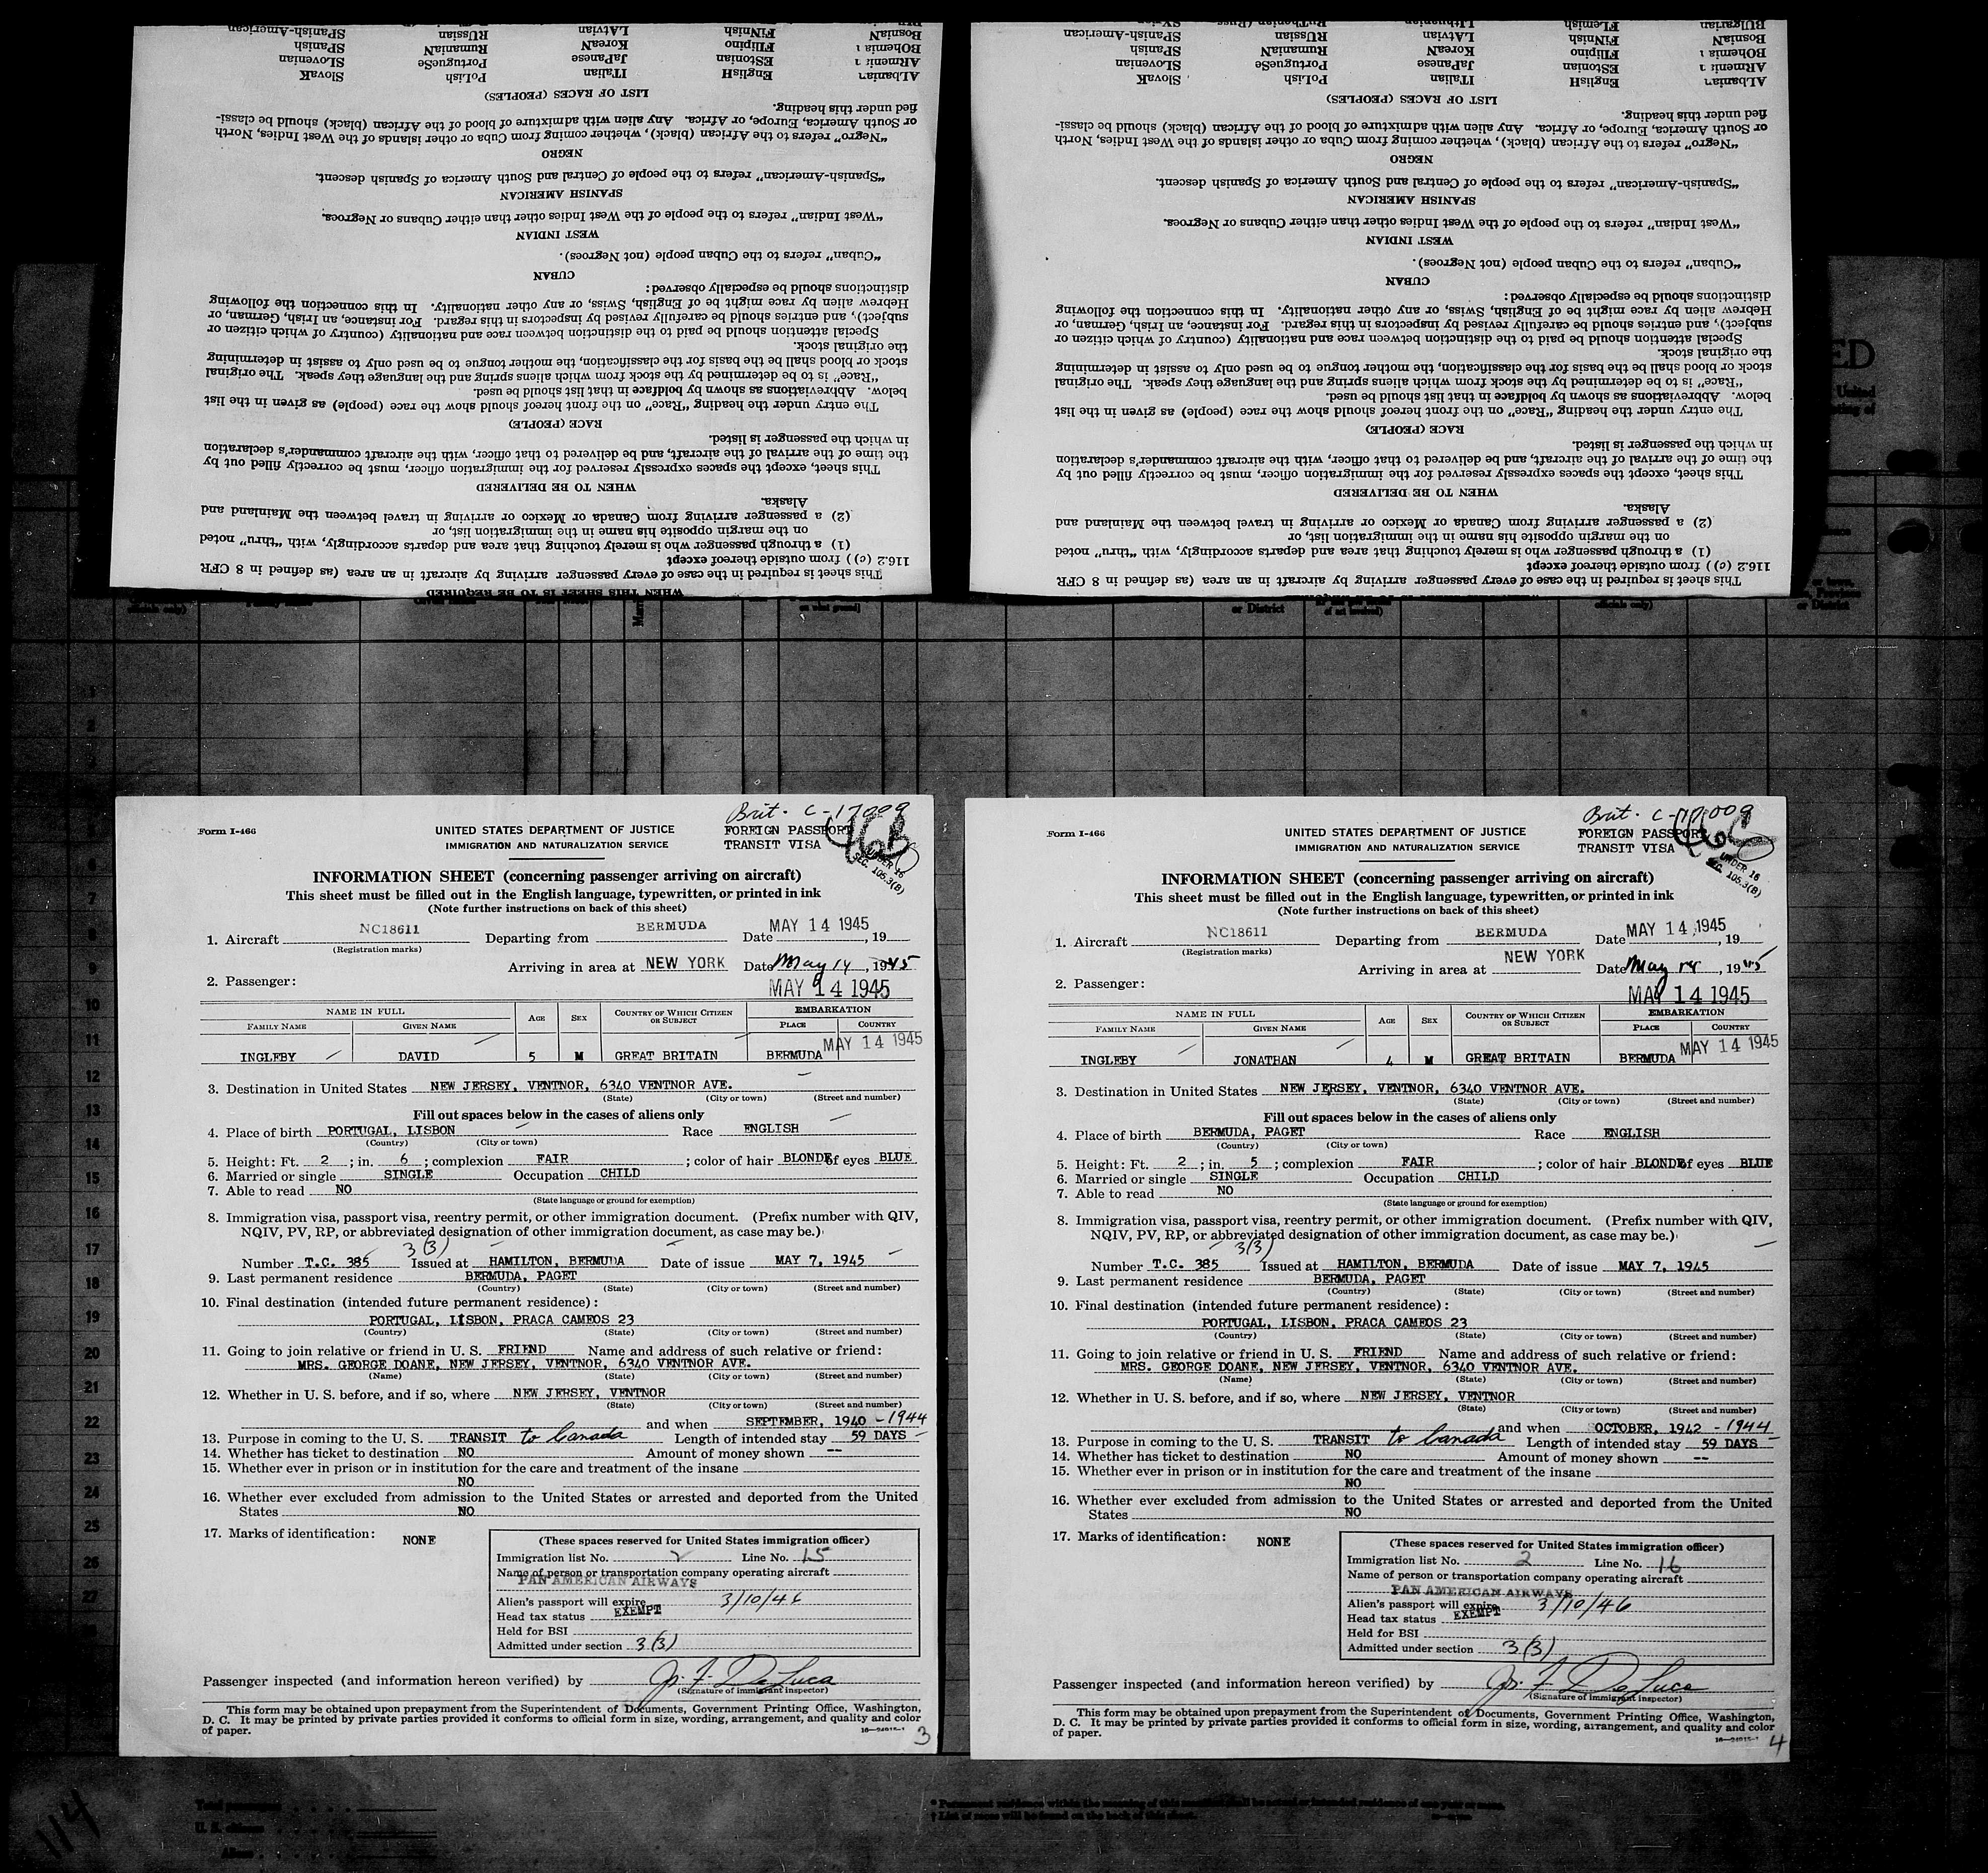 ALbanian EnglisH ITalian PoLish SlovaK
ARmenian EStonian JaPanese PortugueSe SLOVenian
BOhemian FIlipino KoreaN RumaniaN SPanish
BosniaN FiNnish LAtvian RUssian SPanish-American
LIST OF RACES (PEOPLES)
fied under this heading.
or South America, Europe, or Africa. Any alien with admixture of blood of the African (black) should be classi-
“Negro” refers to the African (black), whether coming from Cuba or other islands of the West Indies, North
NEGRO
“Spanish-American” refers to the people of Central and South America of Spanish descent.
SPANISH AMERICAN
“West Indian” refers to the people of the West Indies other than either Cubans or Negroes.
WEST INDIAN
“Cuban” refers to the Cuban people (not Negroes).
CUBAN
distinctions should be especially observed:
Hebrew alien by race might be of English, Swiss, or any other nationality. In this connection the following
subject), and entries should be carefully revised by inspectors in this regard. For instance, an Irish, German, or
Special attention should be paid to the distinction between race and nationality (country of which citizen or
the original stock.
stock or blood shall be the basis for the classification, the mother tongue to be used only to assist in determining
“Race” is to be determined by the stock from which aliens spring and the language they speak. The original
below. Abbreviations as shown by boldface in that list should be used.
The entry under the heading “Race” on the front hereof should show the race (people) as given in the list
RACE (PEOPLE)
in which the passenger is listed.
the time of the arrival of the aircraft, and be delivered to that officer, with the aircraft commander's declaration
This sheet, except the spaces expressly reserved for the immigration officer, must be correctly filled out by
WHEN TO BE DELIVERED
Alaska.
(2) a passenger arriving from Canada or Mexico or arriving in travel between the Mainland and
on the margin opposite his name in the immigration list, or
(1) a through passenger who is merely touching that area and departs accordingly, with “thru” noted
116.2 (c)) from outside thereof except
This sheet is required in the case of every passenger arriving by aircraft in an area (as defined in 8 CFR
WHEN THIS SHEET IS TO BE REQUIRED
BUlgarian FLemish LIthuanian
BosniaN FiNnish LAtvian RUssian SPanish-American
BOhemian FIlipino KoreaN RumaniaN SPanish
ARmenian EStonian JaPanese PortugueSe SLOVenian
ALbanian EnglisH ITalian PoLish SlovaK
LIST OF RACES (PEOPLES)
fied under this heading.
or South America, Europe, or Africa. Any alien with admixture of blood of the African (black) should be classi-
“Negro” refers to the African (black), whether coming from Cuba or other islands of the West Indies, North
NEGRO
“Spanish-American” refers to the people of Central and South America of Spanish descent.
SPANISH AMERICAN
“West Indian” refers to the people of the West Indies other than either Cubans or Negroes.
WEST INDIAN
“Cuban” refers to the Cuban people (not Negroes).
CUBAN
distinctions should be especially observed:
Hebrew alien by race might be of English, Swiss, or any other nationality. In this connection the following
subject), and entries should be carefully revised by inspectors in this regard. For instance, an Irish, German, or
Special attention should be paid to the distinction between race and nationality (country of which citizen or
the original stock.
stock or blood shall be the basis for the classification, the mother tongue to be used only to assist in determining
“Race” is to be determined by the stock from which aliens spring and the language they speak. The original
below. Abbreviations as shown by boldface in that list should be used.
The entry under the heading “Race” on the front hereof should show the race (people) as given in the list
RACE (PEOPLE)
in which the passenger is listed.
the time of the arrival of the aircraft, and be delivered to that officer, with the aircraft commander's declaration
This sheet, except the spaces expressly reserved for the immigration officer, must be correctly filled out by
WHEN TO BE DELIVERED
Alaska.
(2) a passenger arriving from Canada or Mexico or arriving in travel between the Mainland and
on the margin opposite his name in the immigration list, or
(1) a through passenger who is merely touching that area and departs accordingly, with “thru” noted
116.2 (c)) from outside thereof except
This sheet is required in the case of every passenger arriving by aircraft in an area (as defined in 8 CFR
Brit. C-17009
Form I-466 UNITED STATES DEPARTMENT OF JUSTICE FOREIGN PASSPORT
IMMIGRATION AND NATURALIZATION SERVICE TRANSIT VISA
UNDER 16
SEC. 105.3(B)
INFORMATION SHEET (concerning passenger arriving on aircraft)
This sheet must be filled out in the English language, typewritten, or printed in ink
(Note further instructions on back of this sheet)
1. Aircraft NC18611 Departing from BERMUDA Date MAY 14 1945, 19
(Registration marks)
Arriving in area at NEW YORK Date May 14, 1945
2. Passenger: MAY 14 1945
NAME IN FULL AGE SEX COUNTRY OF WHICH CITIZEN OR SUBJECT EMBARKATION
FAMILY NAME GIVEN NAME PLACE COUNTRY
MAY 14 1945
INGLEBY DAVID 5 M GREAT BRITAIN BERMUDA
3. Destination in United States NEW JERSEY, VENTNOR, 6340 VENTNOR AVE.
(State) (City or town) (Street and number)
Fill out spaces below in the cases of aliens only
4. Place of birth PORTUGAL, LISBON Race ENGLISH
(Country) (City or town)
5. Height: Ft. 2 ; in. 6 ; complexion FAIR ; color of hair BLONDE of eyes BLUE
6. Married or single SINGLE Occupation CHILD
7. Able to read NO
(State language or ground for exemption)
8. Immigration visa, passport visa, reentry permit, or other immigration document. (Prefix number with QIV,
NQIV, PV, RP, or abbreviated designation of other immigration document, as case may be.)
3(3)
Number T.C. 385 Issued at HAMILTON, BERMUDA Date of issue MAY 7, 1945
9. Last permanent residence BERMUDA, PAGET
(Country) (State) (City or town) (Street and number)
10. Final destination (intended future permanent residence):
PORTUGAL, LISBON, PRACA CAMEOS 23
(Country) (State) (City or town) (Street and number)
11. Going to join relative or friend in U. S. FRIEND Name and address of such relative or friend:
MRS. GEORGE DOANE, NEW JERSEY, VENTNOR, 6340 VENTNOR AVE.
(Name) (State) (City or town) (Street and number)
12. Whether in U. S. before, and if so, where NEW JERSEY, VENTNOR
(State) (City or town) (Street and number)
and when SEPTEMBER, 1940 - 1944
13. Purpose in coming to the U. S. TRANSIT to Canada Length of intended stay 59 DAYS
14. Whether has ticket to destination NO Amount of money shown --
15. Whether ever in prison or in institution for the care and treatment of the insane
NO
16. Whether ever excluded from admission to the United States or arrested and deported from the United
States NO
17. Marks of identification: NONE
(These spaces reserved for United States immigration officer)
Immigration list No. 2 Line No. 15
Name of person or transportation company operating aircraft
PAN AMERICAN AIRWAYS
Alien's passport will expire 3/10/46
Head tax status EXEMPT
Held for BSI
Admitted under section 3(3)
Passenger inspected (and information hereon verified) by Jr. F. DeLuca
(Signature of immigrant inspector)
This form may be obtained upon prepayment from the Superintendent of Documents, Government Printing Office, Washington,
D. C. It may be printed by private parties provided it conforms to official form in size, wording, arrangement, and quality and color
of paper.
3
Brit. C-17009
Form I-466 UNITED STATES DEPARTMENT OF JUSTICE FOREIGN PASSPORT
IMMIGRATION AND NATURALIZATION SERVICE TRANSIT VISA
UNDER 16
SEC. 105.3(B)
INFORMATION SHEET (concerning passenger arriving on aircraft)
This sheet must be filled out in the English language, typewritten, or printed in ink
(Note further instructions on back of this sheet)
1. Aircraft NC18611 Departing from BERMUDA Date MAY 14 1945, 19
(Registration marks)
Arriving in area at NEW YORK Date May 14, 1945
2. Passenger: MAY 14 1945
NAME IN FULL AGE SEX COUNTRY OF WHICH CITIZEN OR SUBJECT EMBARKATION
FAMILY NAME GIVEN NAME PLACE COUNTRY
MAY 14 1945
INGLEBY JONATHAN 4 M GREAT BRITAIN BERMUDA
3. Destination in United States NEW JERSEY, VENTNOR, 6340 VENTNOR AVE.
(State) (City or town) (Street and number)
Fill out spaces below in the cases of aliens only
4. Place of birth BERMUDA, PAGET Race ENGLISH
(Country) (City or town)
5. Height: Ft. 2 ; in. 5 ; complexion FAIR ; color of hair BLONDE of eyes BLUE
6. Married or single SINGLE Occupation CHILD
7. Able to read NO
(State language or ground for exemption)
8. Immigration visa, passport visa, reentry permit, or other immigration document. (Prefix number with QIV,
NQIV, PV, RP, or abbreviated designation of other immigration document, as case may be.)
3(3)
Number T.C. 385 Issued at HAMILTON, BERMUDA Date of issue MAY 7, 1945
9. Last permanent residence BERMUDA, PAGET
(Country) (State) (City or town) (Street and number)
10. Final destination (intended future permanent residence):
PORTUGAL, LISBON, PRACA CAMEOS 23
(Country) (State) (City or town) (Street and number)
11. Going to join relative or friend in U. S. FRIEND Name and address of such relative or friend:
MRS. GEORGE DOANE, NEW JERSEY, VENTNOR, 6340 VENTNOR AVE.
(Name) (State) (City or town) (Street and number)
12. Whether in U. S. before, and if so, where NEW JERSEY, VENTNOR
(State) (City or town) (Street and number)
and when OCTOBER, 1942 - 1944
13. Purpose in coming to the U. S. TRANSIT to Canada Length of intended stay 59 DAYS
14. Whether has ticket to destination NO Amount of money shown --
15. Whether ever in prison or in institution for the care and treatment of the insane
NO
16. Whether ever excluded from admission to the United States or arrested and deported from the United
States NO
17. Marks of identification: NONE
(These spaces reserved for United States immigration officer)
Immigration list No. 2 Line No. 16
Name of person or transportation company operating aircraft
PAN AMERICAN AIRWAYS
Alien's passport will expire 3/10/46
Head tax status EXEMPT
Held for BSI
Admitted under section 3(3)
Passenger inspected (and information hereon verified) by Jr. F. DeLuca
(Signature of immigrant inspector)
This form may be obtained upon prepayment from the Superintendent of Documents, Government Printing Office, Washington,
D. C. It may be printed by private parties provided it conforms to official form in size, wording, arrangement, and quality and color
of paper.
4
114